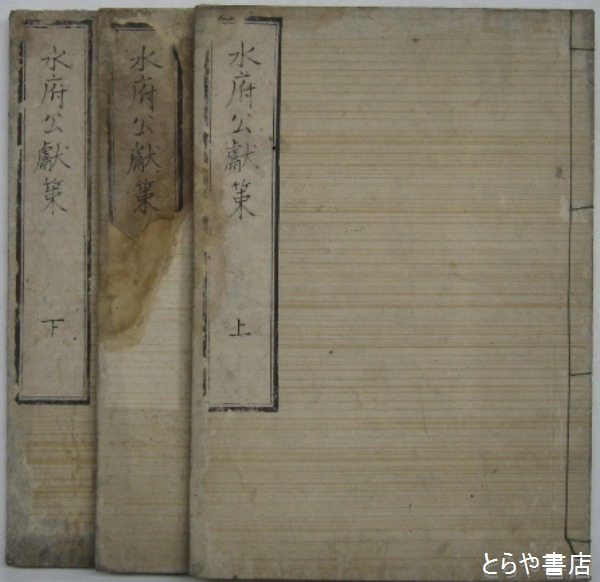 水府公獻策
上
水府公獻策
水府公獻策
下
とらや書店